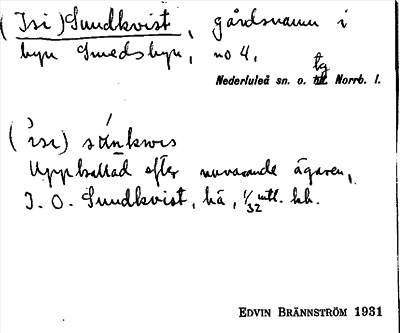 (Isi) Sundkvist, gårdsnamn i
byn Smedsbyn, no 4,
Nederluleå sn. o. tg Norrb. l.
Uppkallad efter nuvarande ägaren,
J. O. Sundkvist, hä, 1/32 mtl. kh.
EDVIN BRÄNNSTRÖM 1931